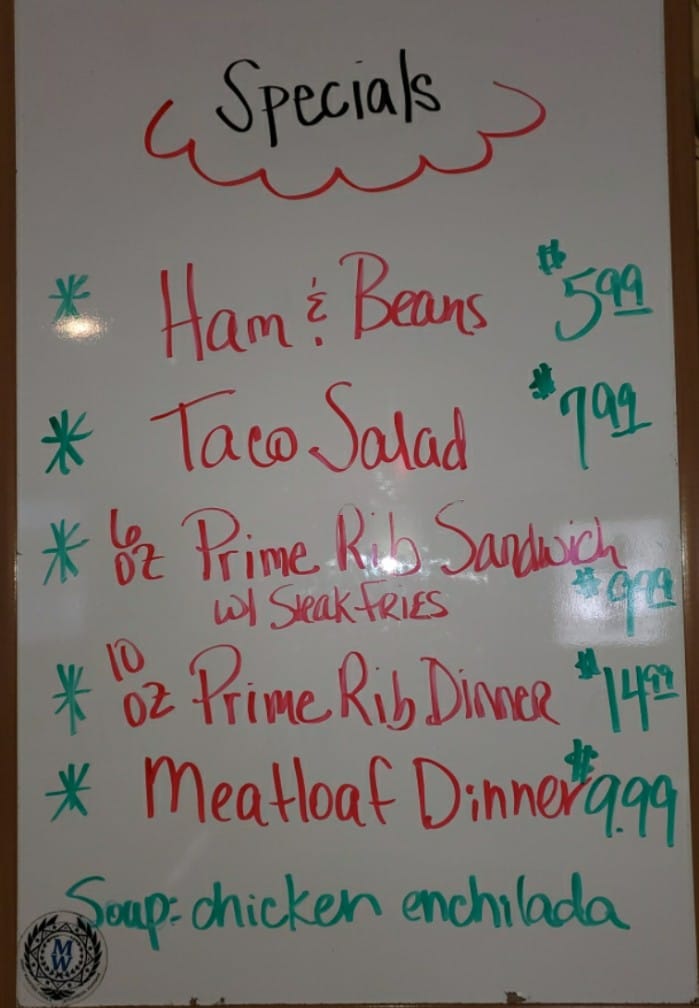 Specials
* Ham & Beans $5.99
* Taco Salad $7.99
* 6 oz Prime Rib Sandwich
w/ Steak FRIES $9.99
* 10 oz Prime Rib Dinner $14.99
* Meatloaf Dinner $9.99
Soup: chicken enchilada
MW